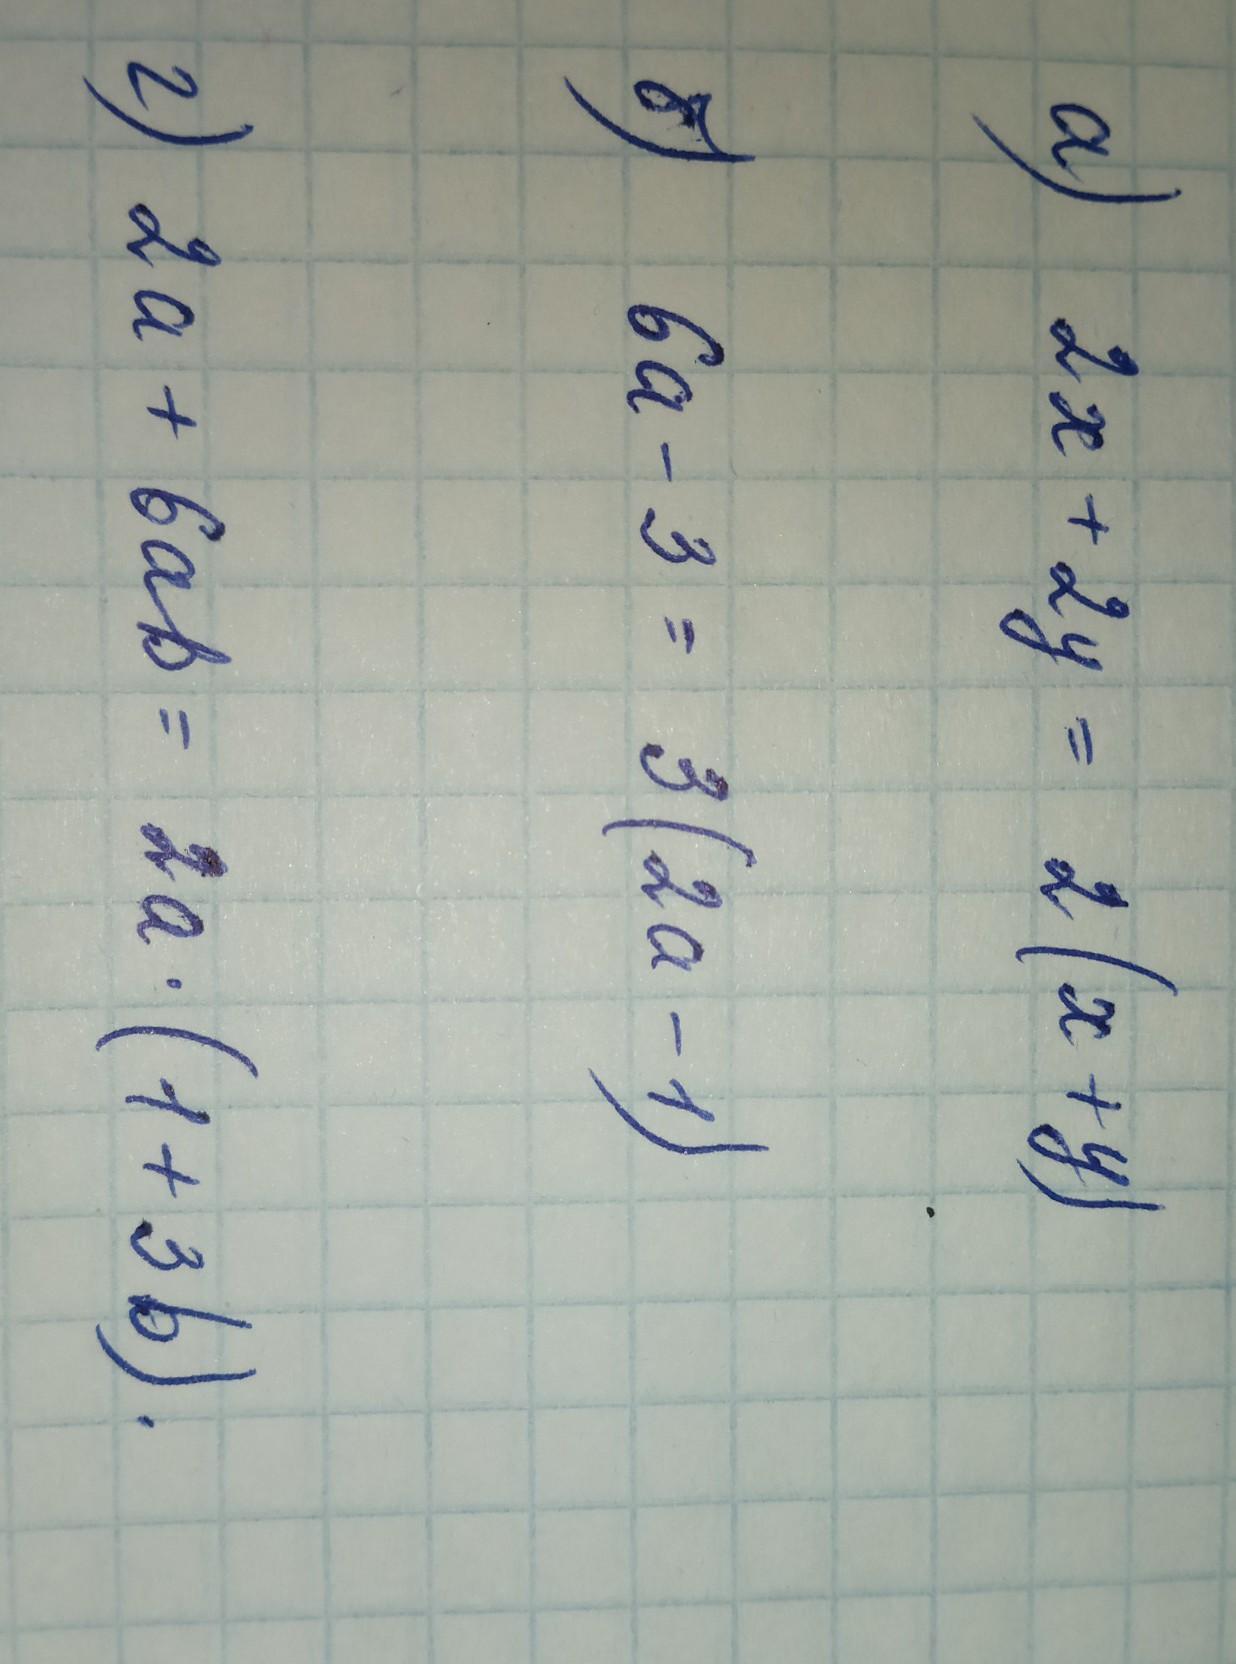 а) 2x + 2y = 2(x + y)
б) 6a - 3 = 3(2a - 1)
г) 2a + 6ab = 2a · (1 + 3b).